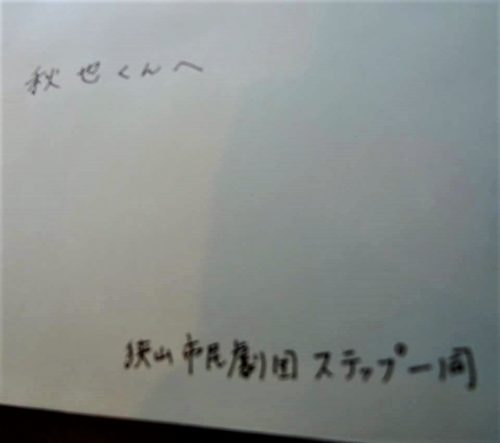 秋也くんへ
狭山市民劇団ステップ一同